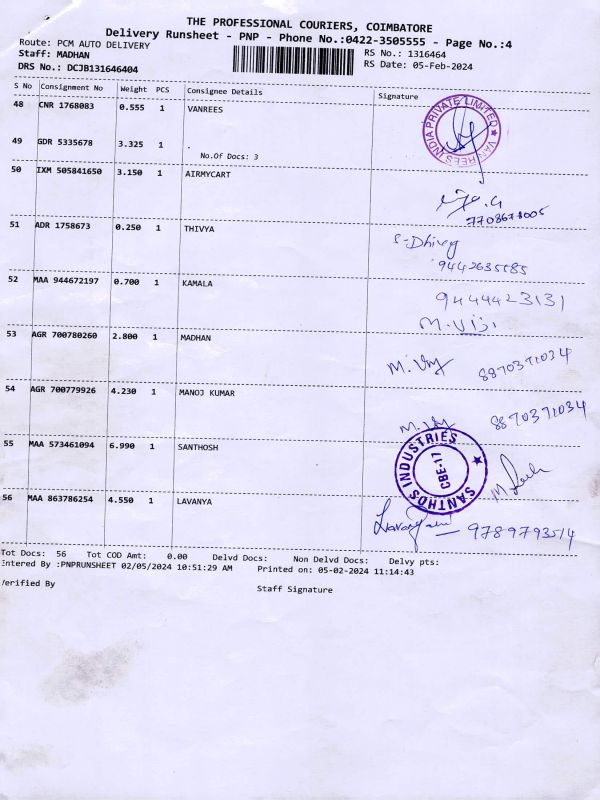 THE PROFESSIONAL COURIERS, COIMBATORE
Delivery Runsheet - PNP - Phone No.:0422-3505555 - Page No.:4
Route: PCM AUTO DELIVERY
RS No.: 1316464
Staff: MADHAN
RS Date: 05-Feb-2024
DRS No.: DCJB131646404
S No Consignment No Weight PCS Consignee Details Signature
48 CNR 1768083 0.555 1 VANREES
VANREES INDIA PRIVATE LIMITED ★
49 GDR 5335678 3.325 1 .
No.Of Docs: 3
50 IXM 505841650 3.150 1 AIRMYCART
51 ADR 1758673 0.250 1 THIVYA
52 MAA 944672197 0.700 1 KAMALA
9444423131
M. Viji
53 AGR 700780260 2.800 1 MADHAN
8870371034
54 AGR 700779926 4.230 1 MANOJ KUMAR
8870371034
55 MAA 573461094 6.990 1 SANTHOSH
SANTHOS INDUSTRIES ★
CBE-17
56 MAA 863786254 4.550 1 LAVANYA
Tot Docs: 56 Tot COD Amt: 0.00 Delvd Docs: Non Delvd Docs: Delvy pts:
Entered By :PNPRUNSHEET 02/05/2024 10:51:29 AM Printed on: 05-02-2024 11:14:43
Verified By
Staff Signature